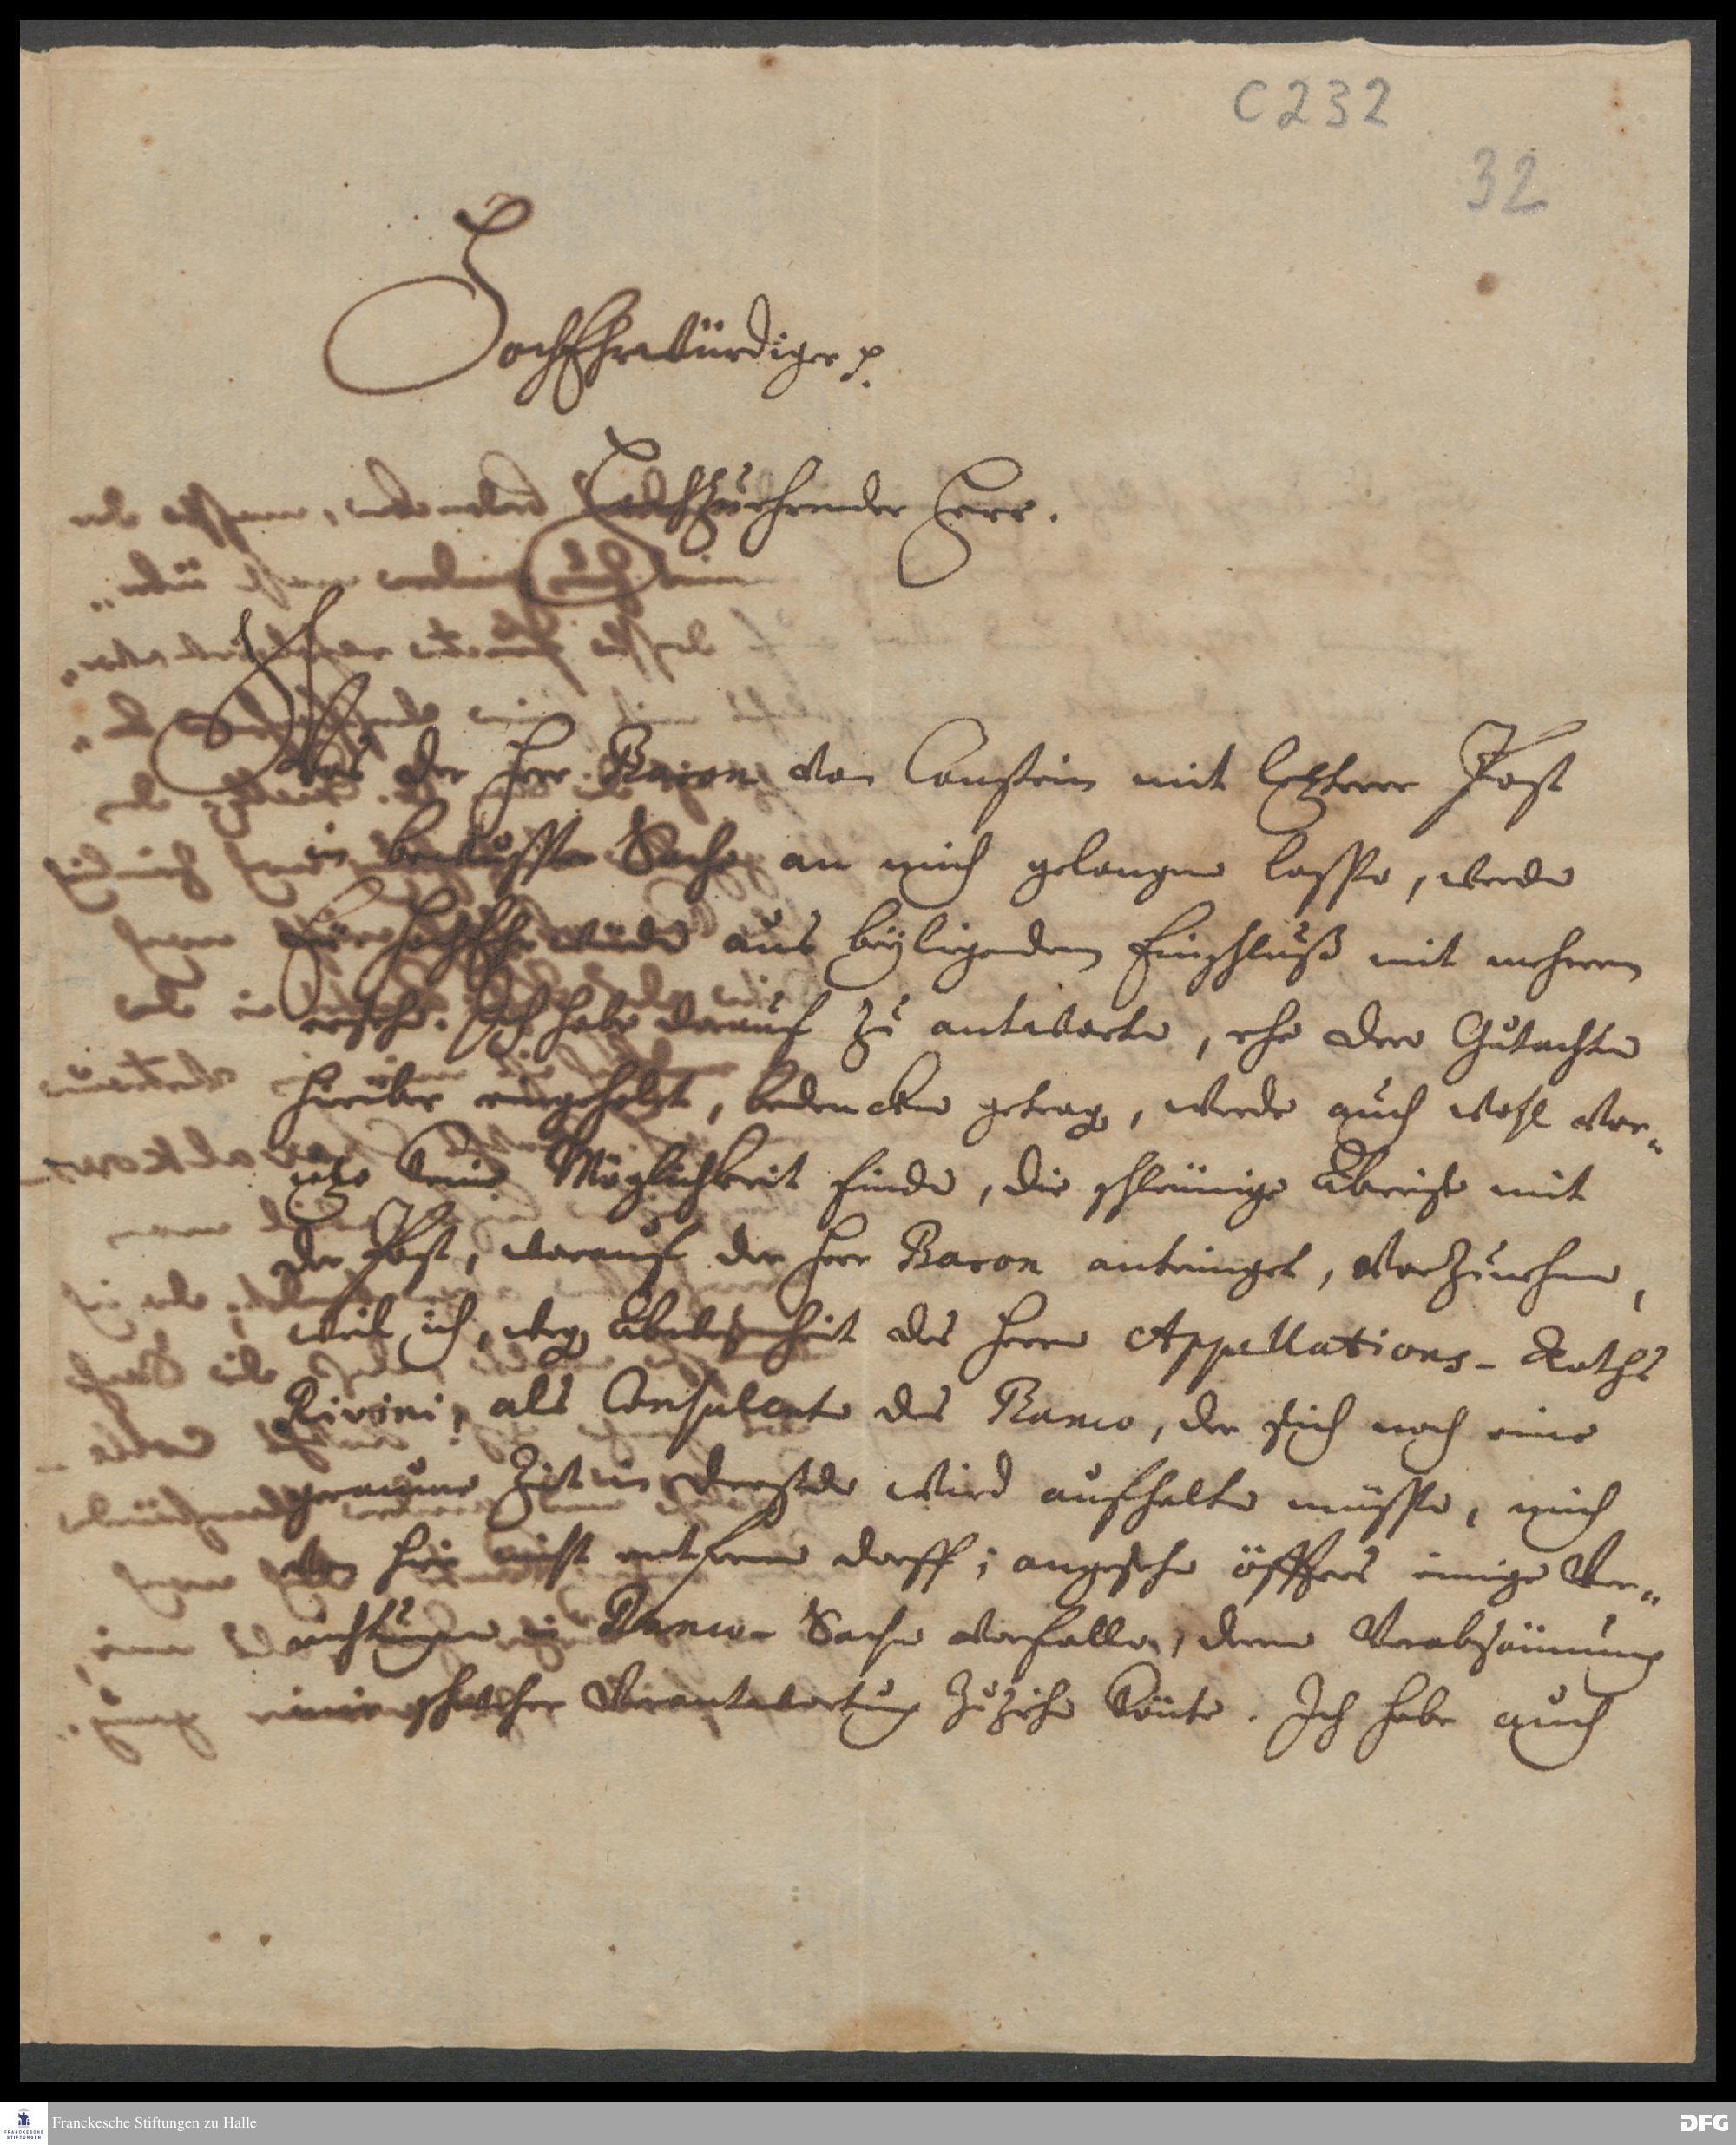 C 232
32
HochEhrwürdiger p.
Hochzuehrender Herr.
Was der Herr Baron von Canstein mit letzterer Post
in bewusster Sache an mich gelangen lassen, werden
Eür HochEhrwürden aus beyligendem Einschluß mit mehrern
ersehen. Ich habe darauf zu antworten, ehe dero Gutachten
hierüber eingeholet, bedencken getragen, werde auch wohl vor-
itzo keine Möglichkeit finden, die schleünige Abreise mit
der Post, worauf der Herr Baron antringet, vorzunehmen,
weil ich, wegen Abwesenheit des Herrn Appellations-Raths
Rivini, als Consulenten des Banco, der sich noch eine
geraume Zeit in Dreßden wird aufhalten müssen, mich
von hier nicht entfernen darff; angesehen öffters einige Ver-
richtungen in Banco-Sachen vorfallen, deren Verabsäumung
schwehre Verantwortung zuziehen könte. Ich habe auch
Franckesche Stiftungen zu Halle
FRANCKESCHE
STIFTUNGEN
DFG